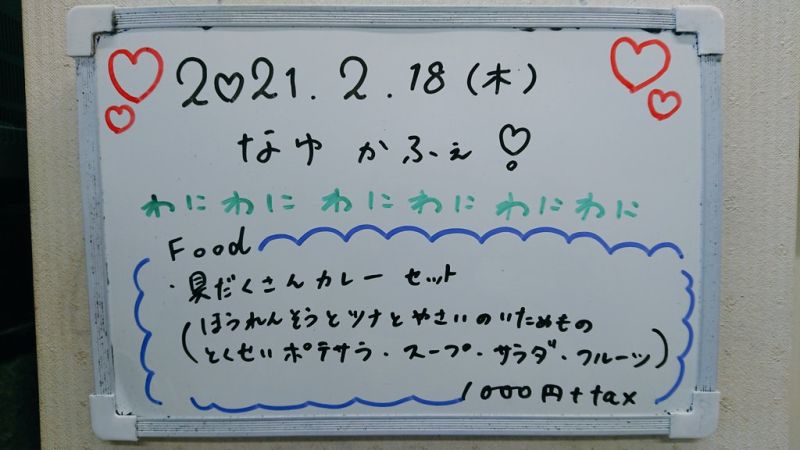 2021.2.18(木)
なゆ かふぇ
わにわに わにわに わにわに
Food
・具だくさんカレーセット
(ほうれんそうとツナとやさいのいためもの
とくせいポテサラ・スープ・サラダ・フルーツ)
1000円+tax